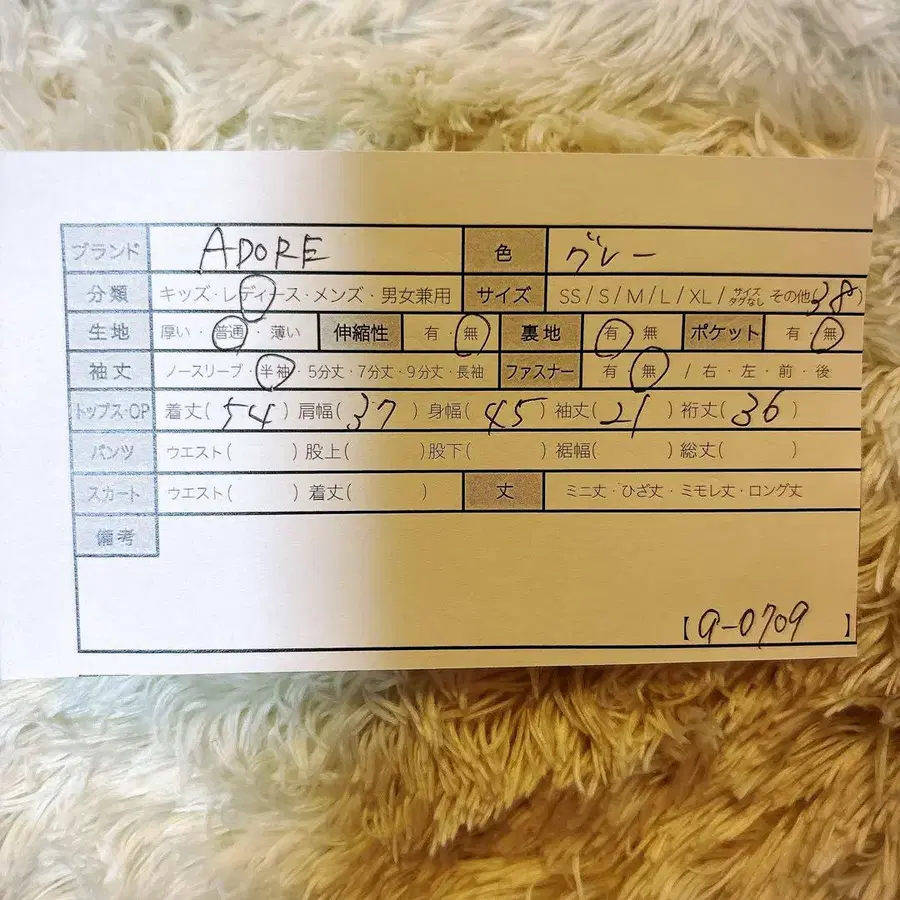 ブランド ADORE 色 グレー
分類 キッズ・レディース・メンズ・男女兼用 サイズ SS/S/M/L/XL/サイズタグなし その他(38)
生地 厚い・普通・薄い 伸縮性 有・無 裏地 有・無 ポケット 有・無
袖丈 ノースリーブ・半袖・5分丈・7分丈・9分丈・長袖 ファスナー 有・無 / 右・左・前・後
トップス・OP 着丈( 54 ) 肩幅( 37 ) 身幅( 45 ) 袖丈( 21 ) 裄丈( 36 )
パンツ ウエスト( ) 股上( ) 股下( ) 裾幅( ) 総丈( )
スカート ウエスト( ) 着丈( ) 丈 ミニ丈・ひざ丈・ミモレ丈・ロング丈
備考
【a-0709】